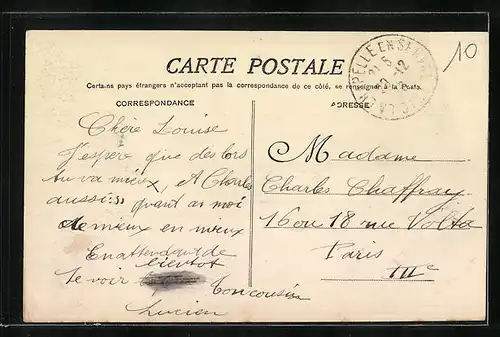 CARTE POSTALE
Certains pays étrangers n'acceptant pas la correspondance de ce côté, se renseigner à la Poste.
CORRESPONDANCE
ADRESSE
Chère Louise
J'espere que des lors
tu va mieux, et Charles
aussi: quant as moi
de mieux en mieux
En attendant de
te voir bientot
ton cousin
Lucien
Madame
Charles Chaffray
16 ou 18 rue Volta
Paris
IIIe
10
PELLE EN SERVAL
21 5
12